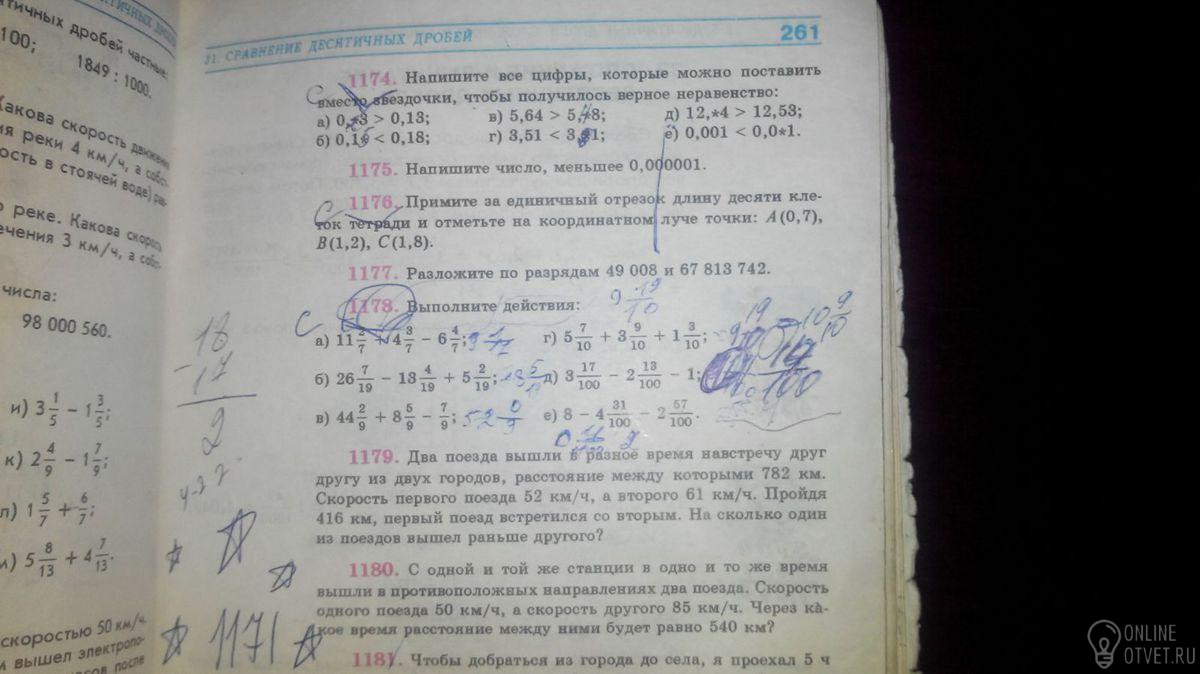 тичных дробей частные:
100; 1849 : 1000.
Какова скорость движения
ия реки 4 км/ч, а собст-
ость в стоячей воде) рав-
о реке. Какова скорость
ечения 3 км/ч, а собст-
числа:
98 000 560.
и) 3 1/5 − 1 3/5;
к) 2 4/9 − 1 7/9;
л) 1 5/7 + 6/7;
м) 5 8/13 + 4 7/13.
скоростью 50 км/ч.
и вышел электропо-
асов после
18
- 17
2
1171
31. СРАВНЕНИЕ ДЕСЯТИЧНЫХ ДРОБЕЙ 261
1174. Напишите все цифры, которые можно поставить
вместо звездочки, чтобы получилось верное неравенство:
а) 0,*3 > 0,13; в) 5,64 > 5,*8; д) 12,*4 > 12,53;
б) 0,1* < 0,18; г) 3,51 < 3,*1; е) 0,001 < 0,0*1.
1175. Напишите число, меньшее 0,000001.
1176. Примите за единичный отрезок длину десяти кле-
ток тетради и отметьте на координатном луче точки: A(0,7),
B(1,2), C(1,8).
1177. Разложите по разрядам 49 008 и 67 813 742.
1178. Выполните действия: 9 19/10
а) 11 2/7 + 4 3/7 − 6 4/7; г) 5 7/10 + 3 9/10 + 1 3/10; 10 9/10
б) 26 7/19 − 13 4/19 + 5 2/19; д) 3 17/100 − 2 13/100 − 1;
в) 44 2/9 + 8 5/9 − 7/9; 52 0/9 е) 8 − 4 31/100 − 2 57/100.
1179. Два поезда вышли в разное время навстречу друг
другу из двух городов, расстояние между которыми 782 км.
Скорость первого поезда 52 км/ч, а второго 61 км/ч. Пройдя
416 км, первый поезд встретился со вторым. На сколько один
из поездов вышел раньше другого?
1180. С одной и той же станции в одно и то же время
вышли в противоположных направлениях два поезда. Скорость
одного поезда 50 км/ч, а скорость другого 85 км/ч. Через ка-
кое время расстояние между ними будет равно 540 км?
1181. Чтобы добраться из города до села, я проехал 5 ч
ONLINE
OTVET.RU